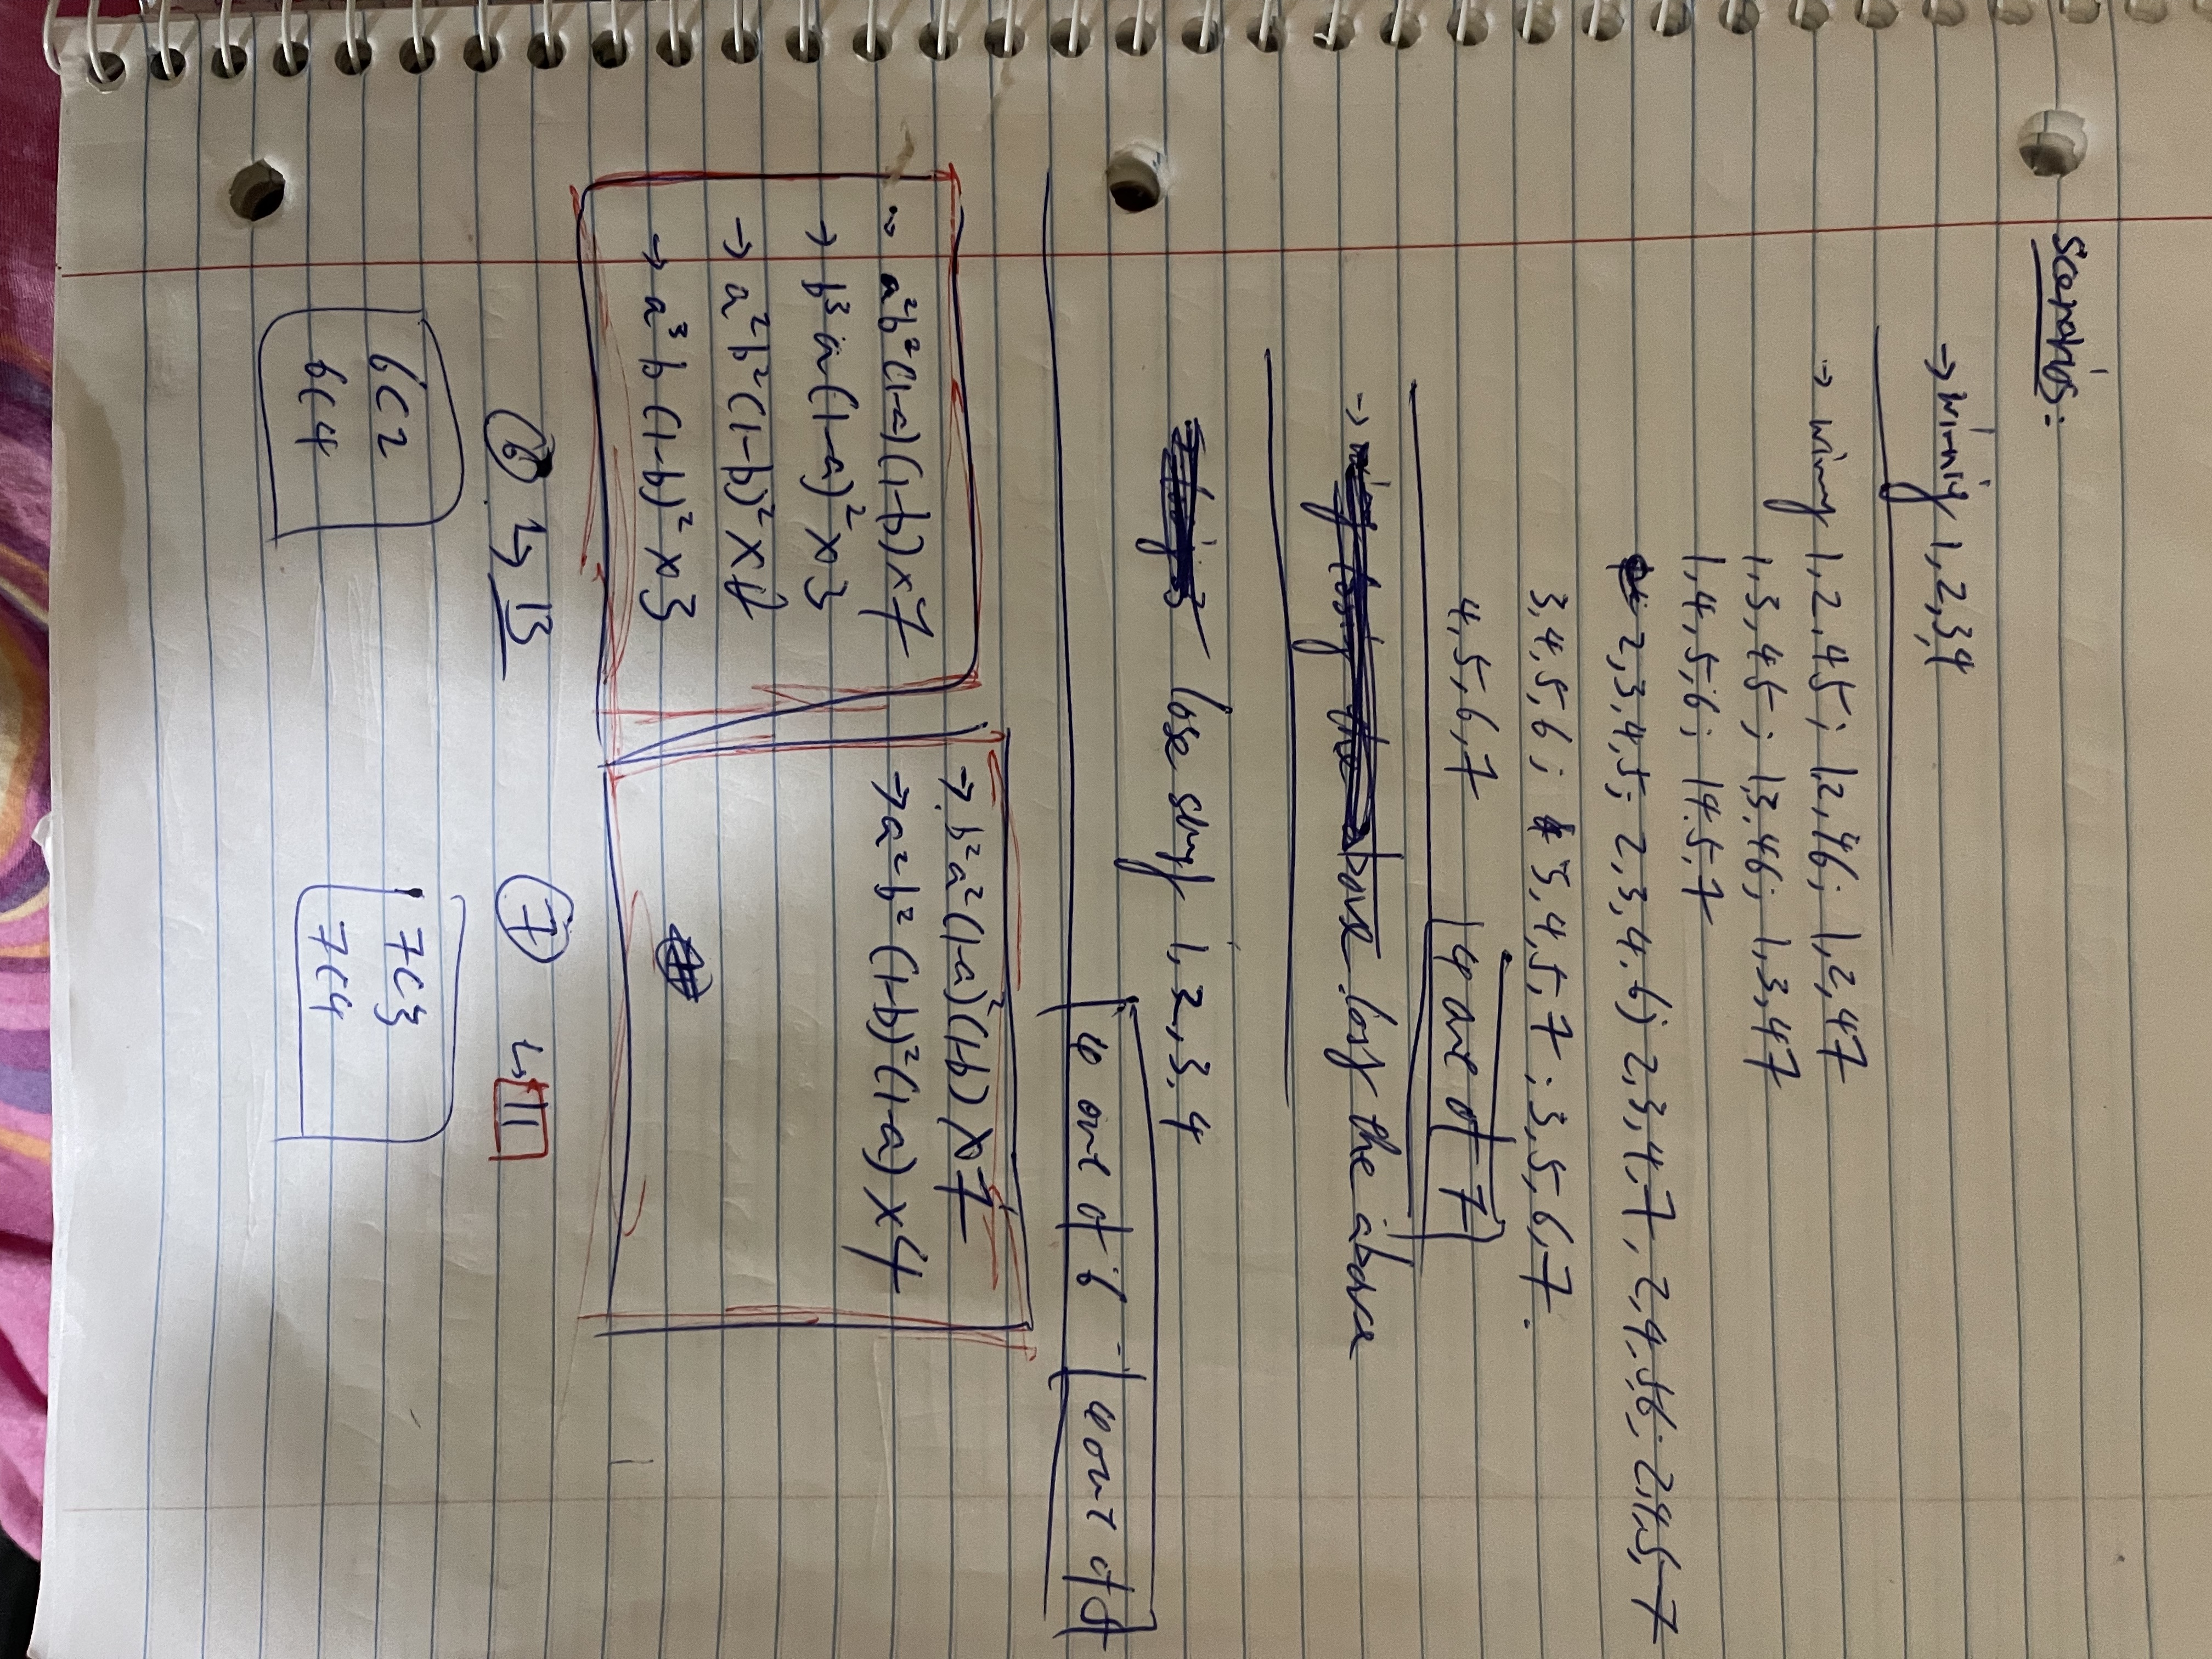 Scenarios:
→ winnig 1,2,3,4
→ winng 1,2,45; 12,46; 1,2,47
1,3,45; 13,46; 1,3,47
1,4,5,6; 14,5,7
2,3,4,5; 2,3,4,6; 2,3,4,7, 2,4,56; 2,4,5,7
3,4,5,6; 3,4,5,7; 3,5,6,7.
4,5,6,7 4 out of 7
→ losg the above
lose srng 1,2,3,4
4 out of 6 4 out of 5
→ a²b²(1-a)(1-b)×7
→ b³a(1-a)²×3
→ a²b²(1-b)²×
→ a³b(1-b)²×3
→ b²a²(1-a)²(1-b)×7
→ a²b²(1-b)²(1-a)×4
6 ↳ 13
7 ↳ 11
6C2
6C4
7C3
7C4